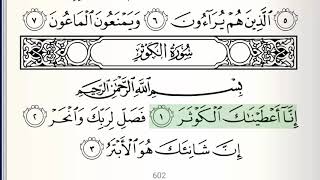 ٥ ٱلَّذِينَ هُمْ يُرَآءُونَ ٦ وَيَمْنَعُونَ ٱلْمَاعُونَ ٧
سُورَةُ ٱلْكَوْثَرِ
بِسْمِ ٱللَّهِ ٱلرَّحْمَٰنِ ٱلرَّحِيمِ
إِنَّآ أَعْطَيْنَٰكَ ٱلْكَوْثَرَ ١ فَصَلِّ لِرَبِّكَ وَٱنْحَرْ ٢
إِنَّ شَانِئَكَ هُوَ ٱلْأَبْتَرُ ٣
602